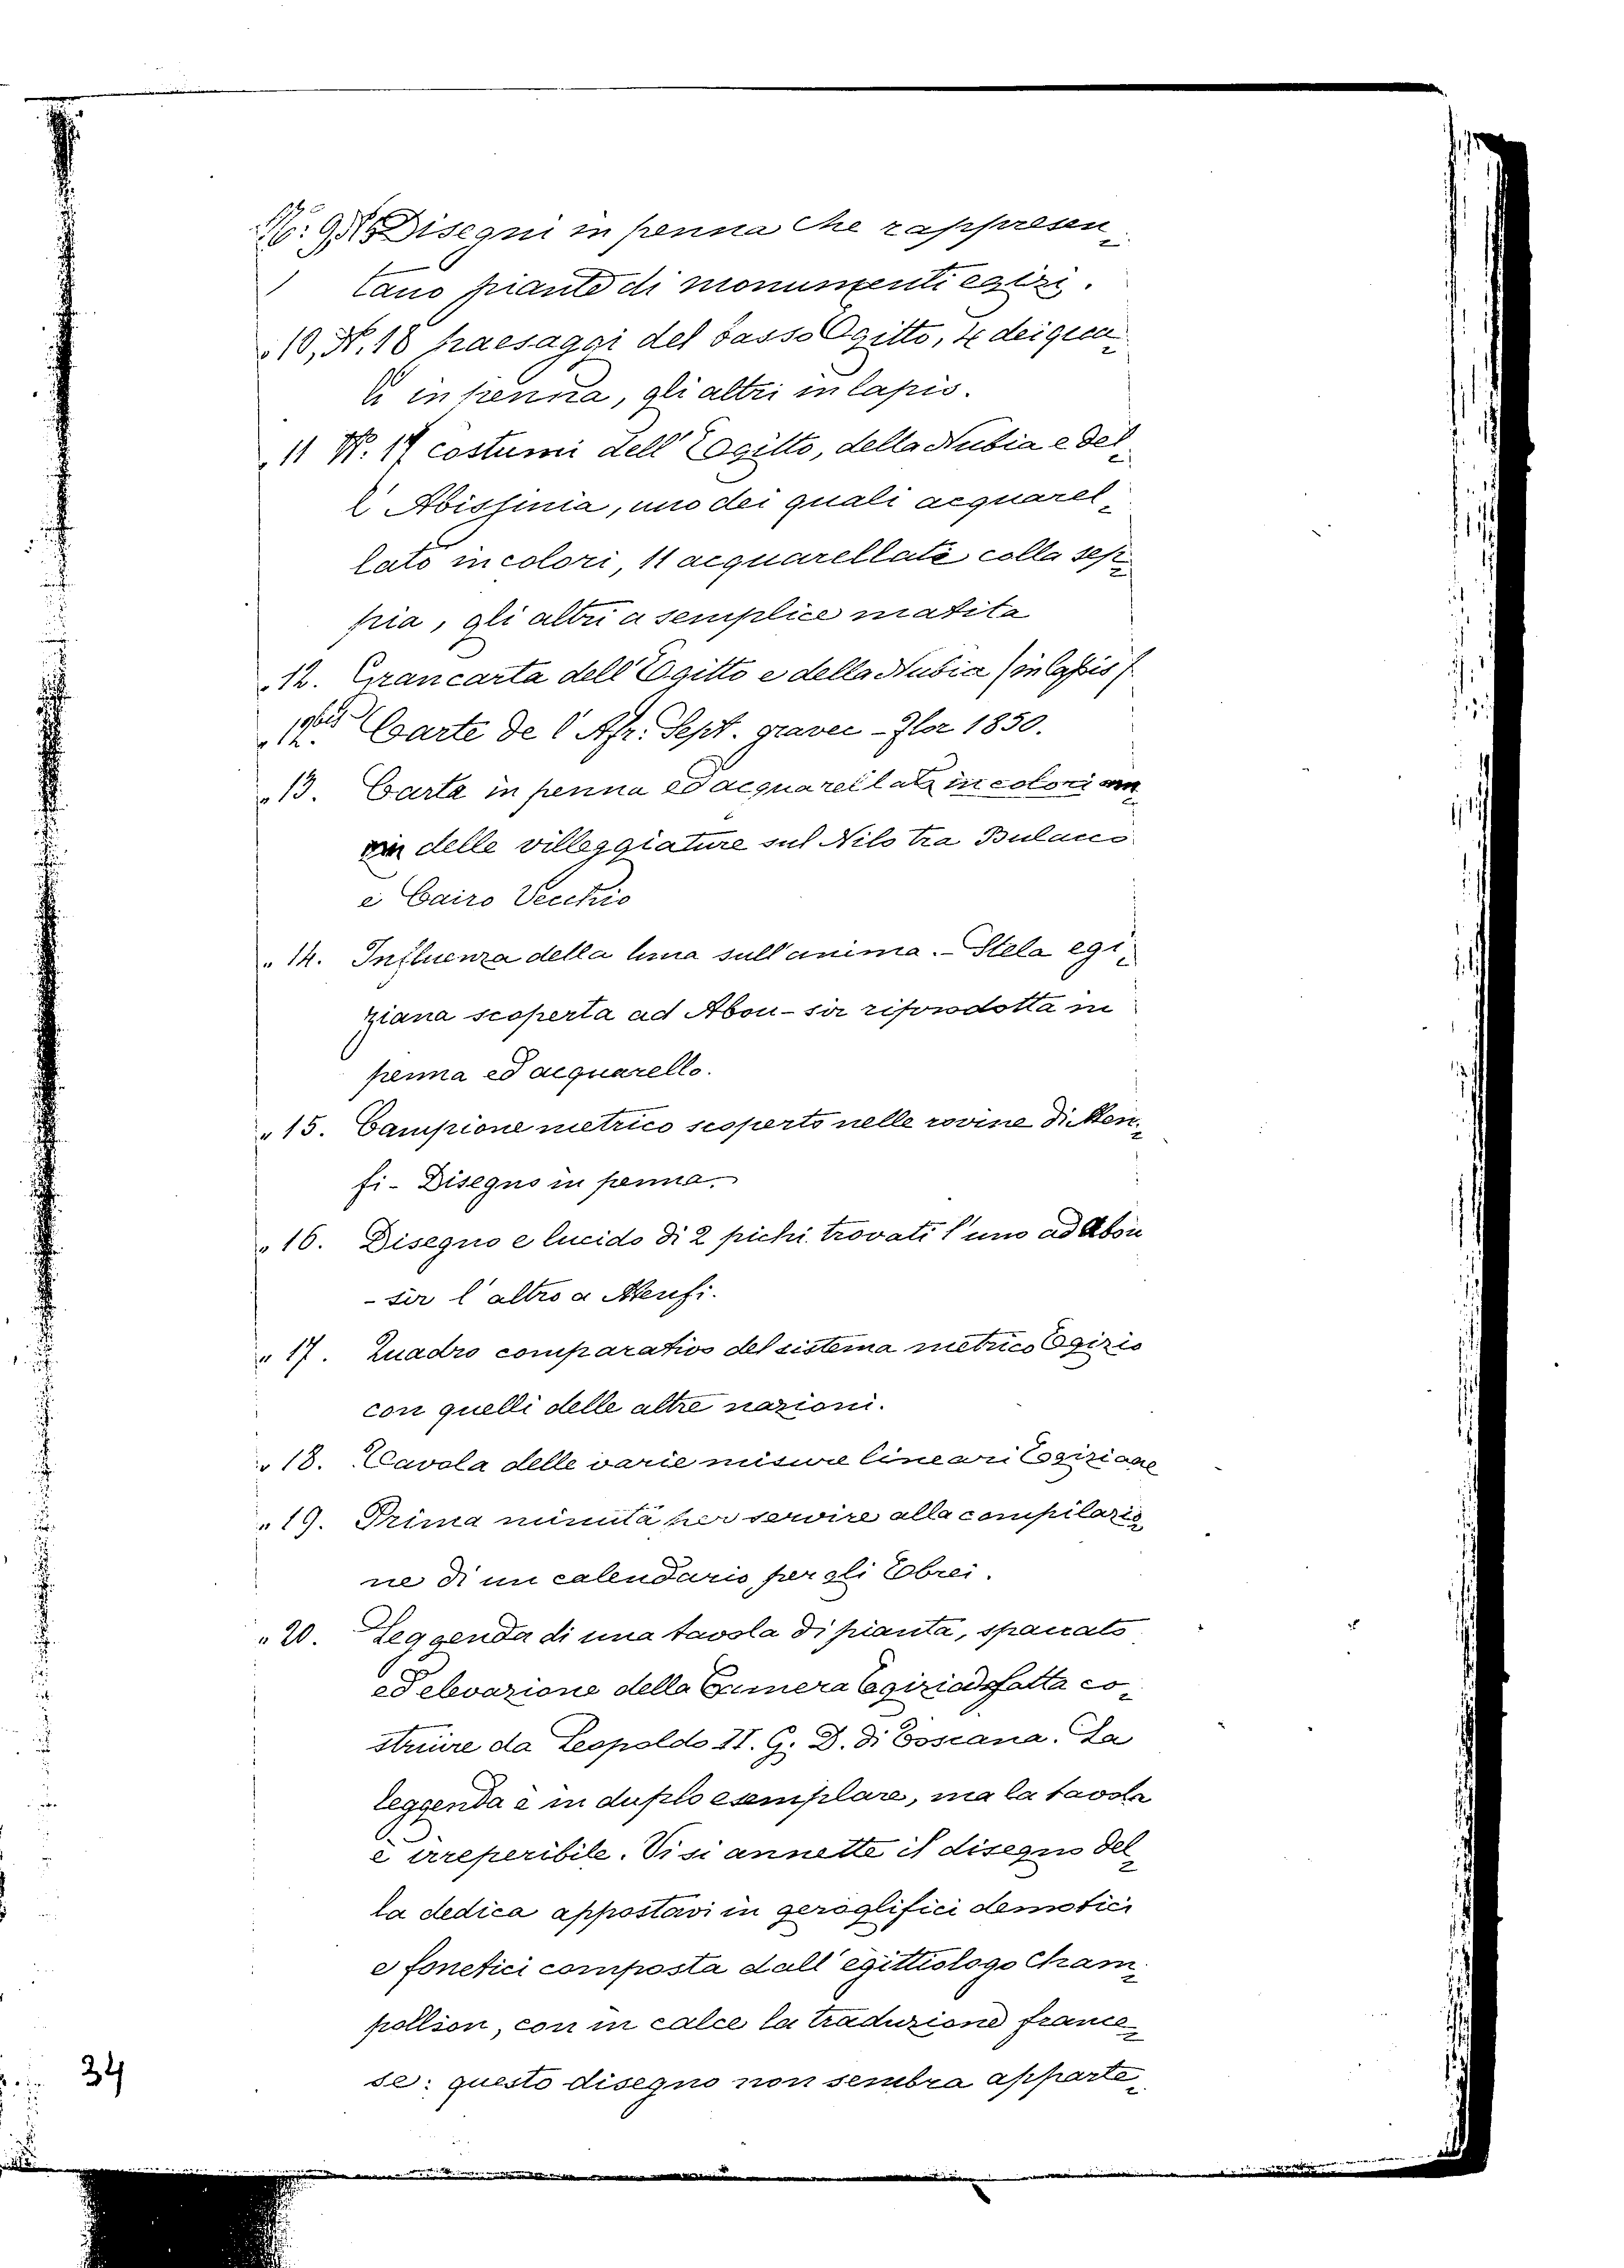 No: 9, N 5 Disegni in penna che rappresen-
tano piante di monumenti egizi.
" 10, N. 18 paesaggi del basso Egitto, 4 dei qua-
li in penna, gli altri in lapis.
" 11 N. 17 costumi dell'Egitto, della Nubia e del-
l'Abissinia, uno dei quali acquarel-
lato in colori, 11 acquarellati colla sep-
pia, gli altri a semplice matita
" 12. Gran carta dell'Egitto e della Nubia (in lapis)
" 12.bis Carte de l'Afr. Sept. gravée - Flor 1830.
" 13. Carta in penna ed acquarellata in colori
delle villeggiature sul Nilo tra Bulacco
e Cairo Vecchio
" 14. Influenza della luna sull'anima. - Stela egi-
ziana scoperta ad Abou-sir riprodotta in
penna ed acquarello.
" 15. Campione metrico scoperto nelle rovine di Men-
fi - Disegno in penna.
" 16. Disegno e lucido di 2 pichi trovati l'uno ad Abou
-sir l'altro a Menfi.
" 17. Quadro comparativo del sistema metrico Egizio
con quelli delle altre nazioni.
" 18. Tavola delle varie misure lineari Egiziane
" 19. Prima minuta per servire alla compilazio-
ne di un calendario per gli Ebrei.
" 20. Leggenda di una tavola di pianta, spaccato
ed elevazione della Camera Egizia fatta co-
struire da Leopoldo II. G. D. di Toscana. La
leggenda è in duplo esemplare, ma la tavola
è irreperibile. Vi si annette il disegno del-
la dedica appostavi in geroglifici demotici
e fonetici composta dall'egittiologo Cham-
pollion, con in calce la traduzione france-
se: questo disegno non sembra apparte-
34